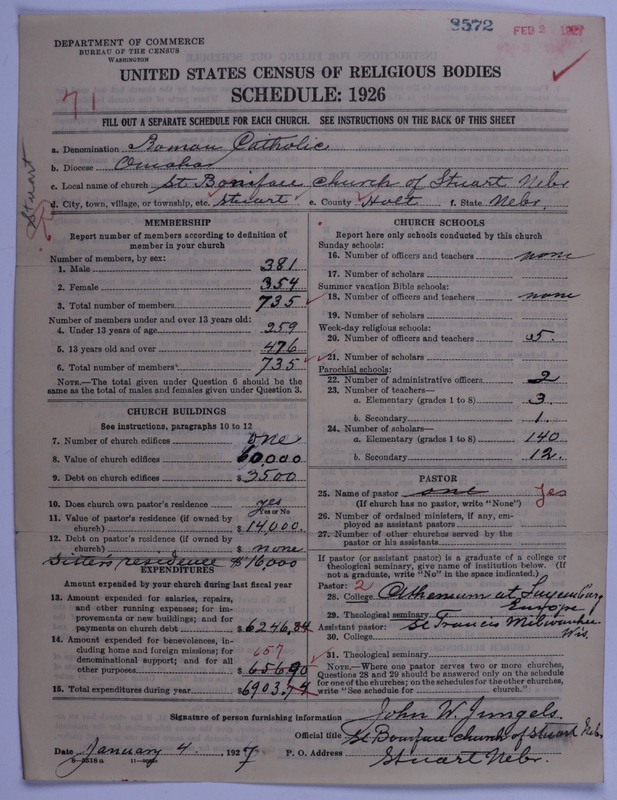 8572 FEB 2 1927
DEPARTMENT OF COMMERCE
BUREAU OF THE CENSUS
WASHINGTON
UNITED STATES CENSUS OF RELIGIOUS BODIES
SCHEDULE: 1926
71
FILL OUT A SEPARATE SCHEDULE FOR EACH CHURCH. SEE INSTRUCTIONS ON THE BACK OF THIS SHEET
a. Denomination Roman Catholic
b. Diocese Omaha
c. Local name of church St. Boniface church of Stuart Nebr
d. City, town, village, or township, etc. Stuart e. County Holt f. State Nebr.
Stuart
MEMBERSHIP
Report number of members according to definition of
member in your church
Number of members, by sex:
1. Male 381
2. Female 354
3. Total number of members 735
Number of members under and over 13 years old:
4. Under 13 years of age 259
5. 13 years old and over 476
6. Total number of members 735
NOTE.—The total given under Question 6 should be
same as the total of males and females given under Question 3.
CHURCH BUILDINGS
See instructions, paragraphs 10 to 12
7. Number of church edifices one
8. Value of church edifices 60,000
9. Debt on church edifices $3500
10. Does church own pastor's residence yes
Yes or No
11. Value of pastor's residence (if owned by
church) $ 14,000.
12. Debt on pastor's residence (if owned by
church) $ none
Sister's residence $16,000
EXPENDITURES
Amount expended by your church during last fiscal year
13. Amount expended for salaries, repairs,
and other running expenses; for im-
provements or new buildings; and for
payments on church debt $6246,84
14. Amount expended for benevolences, in-
cluding home and foreign missions; for 657
denominational support; and for all
other purposes $656.90
15. Total expenditures during year $6903,74
CHURCH SCHOOLS
Report here only schools conducted by this church
Sunday schools:
16. Number of officers and teachers none
17. Number of scholars
Summer vacation Bible schools:
18. Number of officers and teachers none
19. Number of scholars
Week-day religious schools:
20. Number of officers and teachers 5.
21. Number of scholars
Parochial schools:
22. Number of administrative officers 2
23. Number of teachers—
a. Elementary (grades 1 to 8) 3.
b. Secondary 1.
24. Number of scholars—
a. Elementary (grades 1 to 8) 140
b. Secondary 12.
PASTOR
25. Name of pastor one yes
(If church has no pastor, write "None")
26. Number of ordained ministers, if any, em-
ployed as assistant pastors
27. Number of other churches served by the
pastor or his assistants
If pastor (or assistant pastor) is a graduate of a college or
theological seminary, give name of institution below. (If
not a graduate, write "No" in the space indicated.)
Pastor: 2
28. College Athenaeum at Luxemburg
Europe
29. Theological seminary St Francis Milwaukee
Wis.
Assistant pastor:
30. College
31. Theological seminary
NOTE.—Where one pastor serves two or more churches,
Questions 28 and 29 should be answered only on the schedule
for one of the churches; on the schedules for the other churches,
write "See schedule for church."
Signature of person furnishing information John W. Jungels.
Official title St Boniface church of Stuart Nebr
Date January 4, 1927 P. O. Address Stuart Nebr.
8—5518a